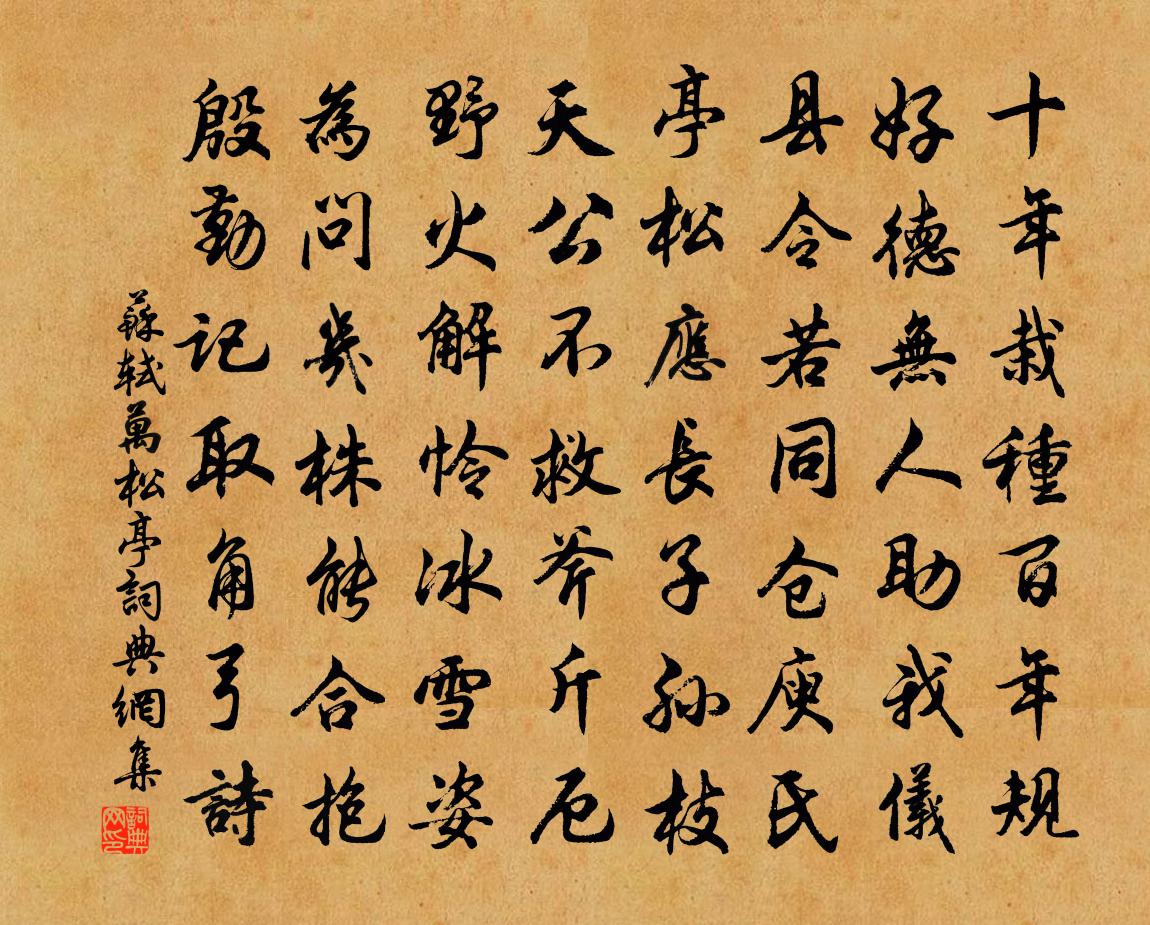 十年栽種百年規
好德無人助我儀
县令若同仓庾氏
亭松應長子孫枝
天公不救斧斤厄
野火解怜冰雪姿
為問幾株能合抱
殷勤記取角弓詩
蘇軾萬松亭詞典網集
詞典网印